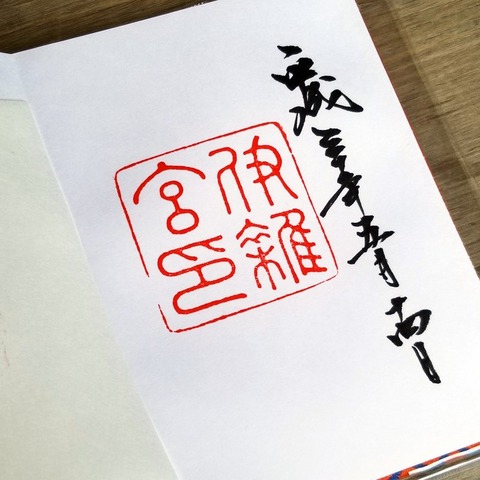 平成三十年五月十四日
伊雜
宮印